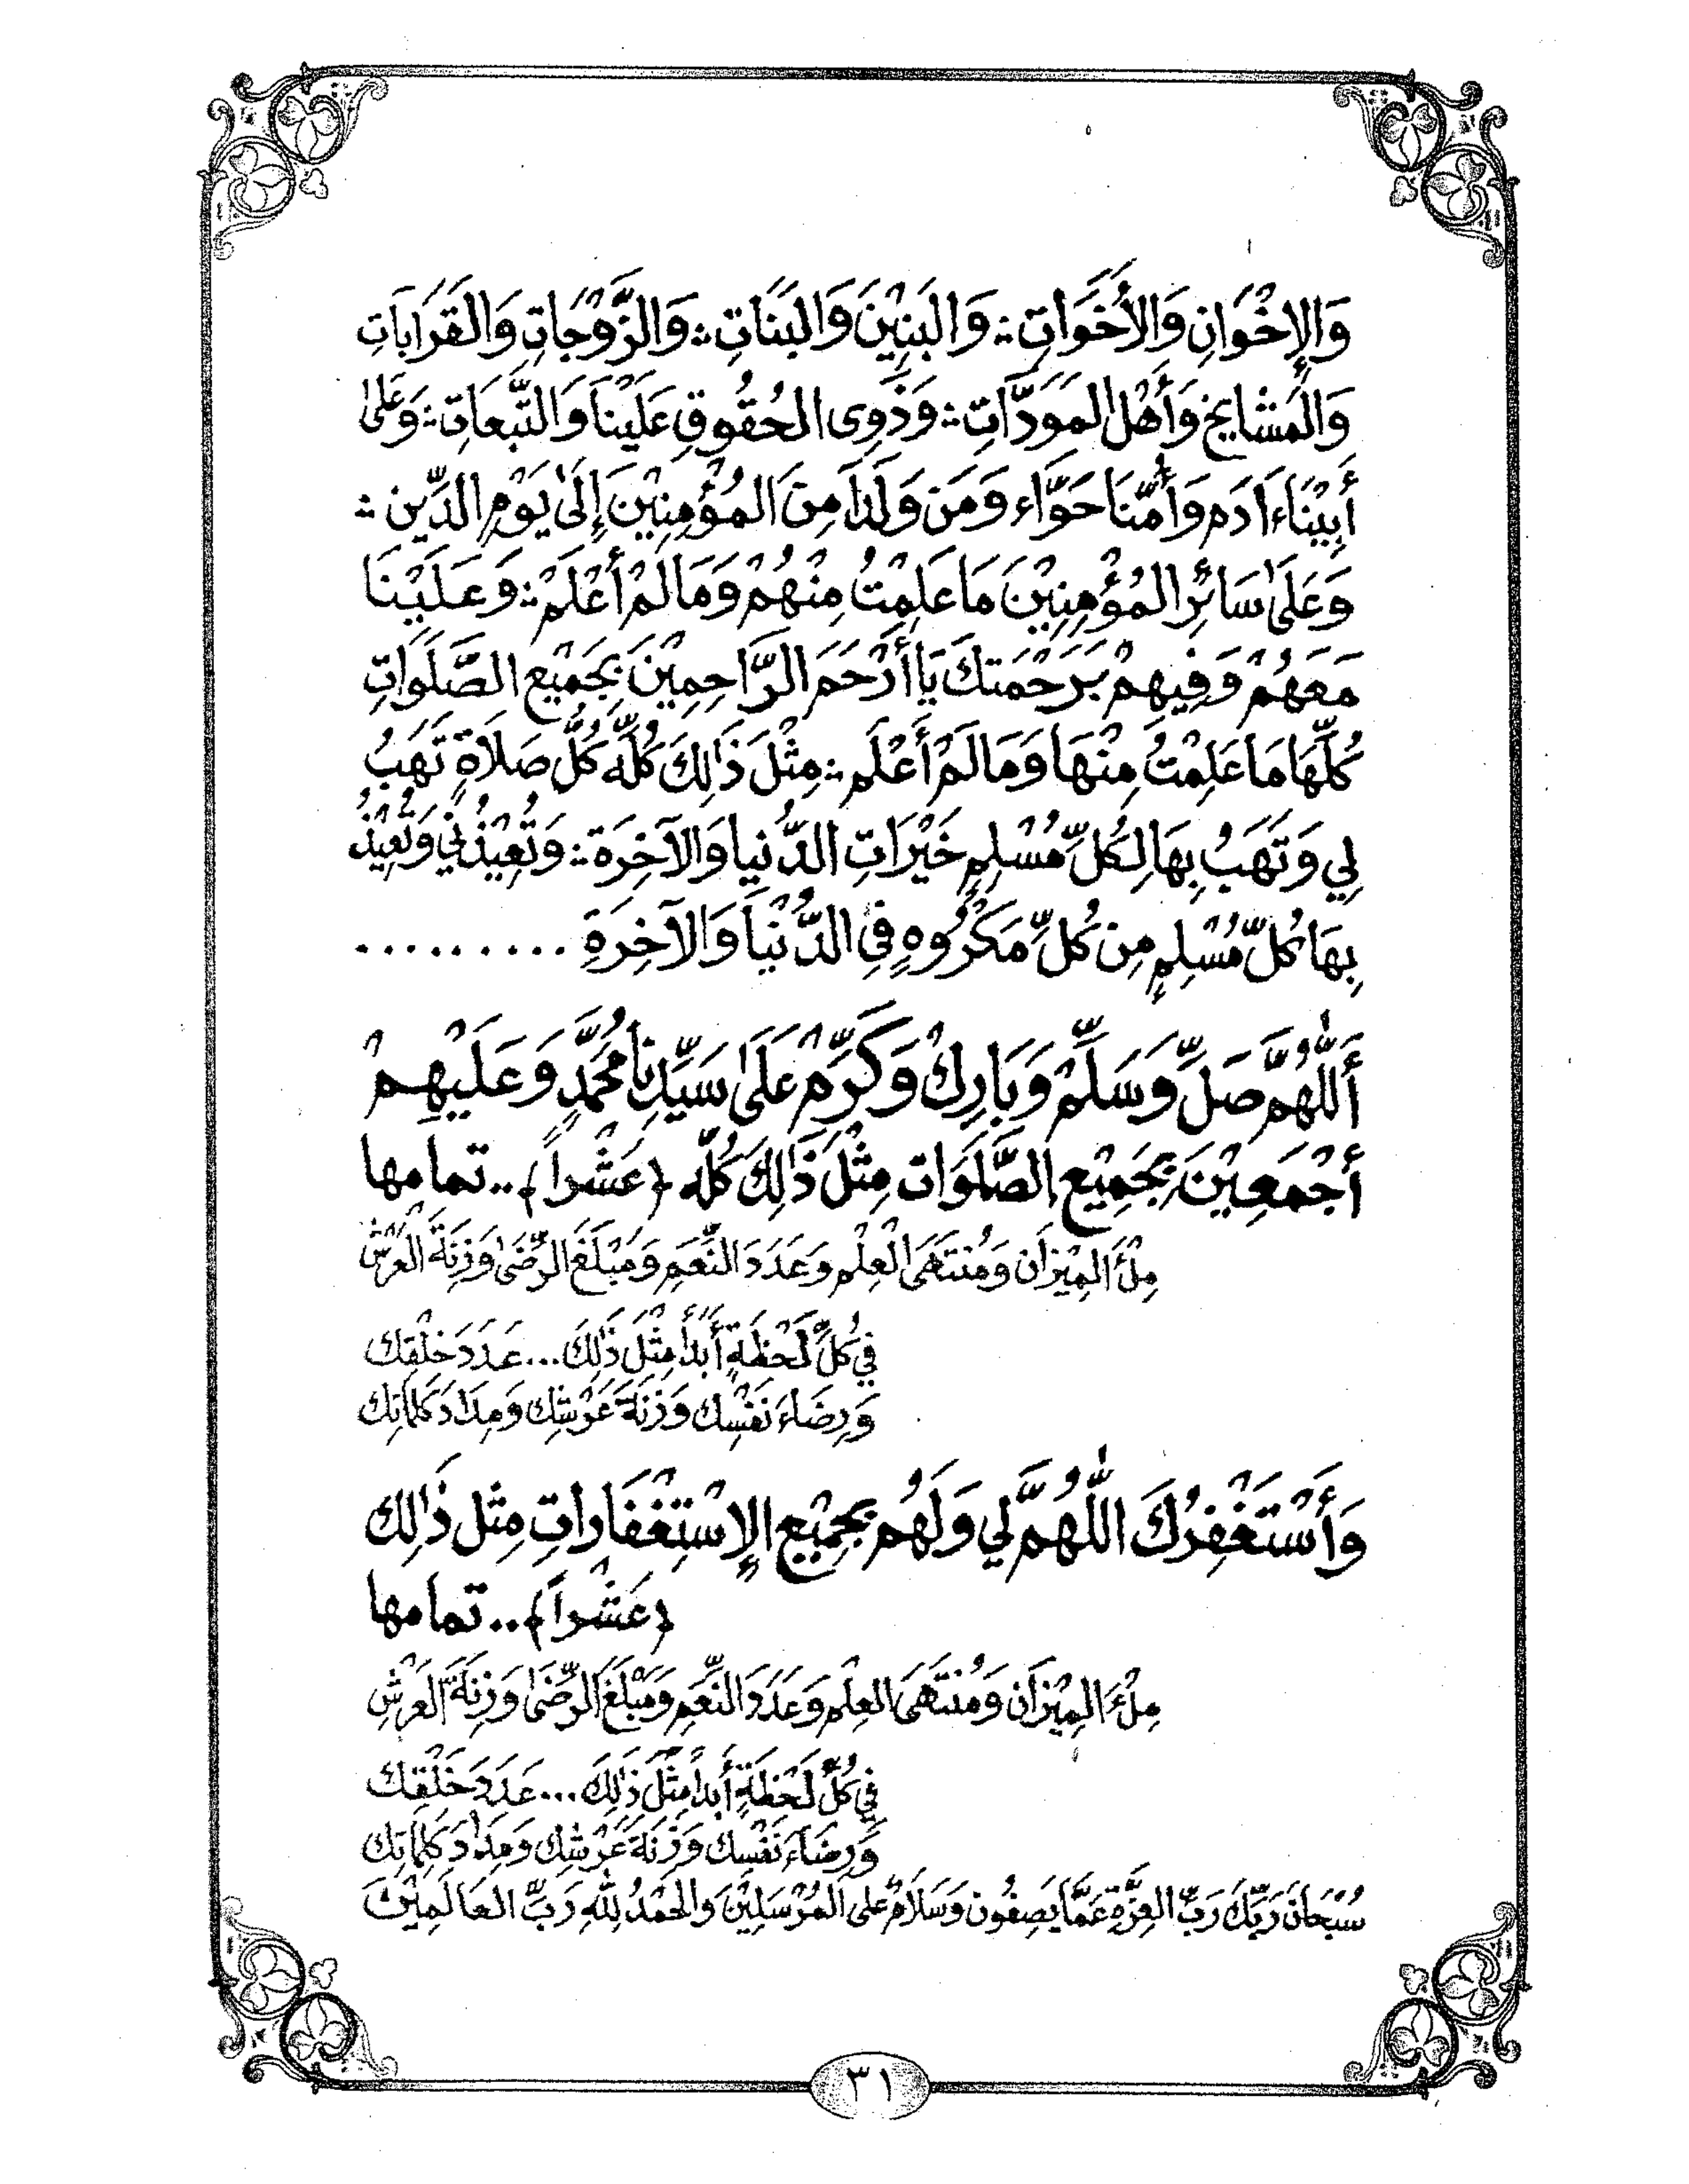 وَالإِخْوَانِ وَالأَخَوَاتِ ؞ وَالْبَنِيْنَ وَالْبَنَاتِ ؞ وَالزَّوْجَاتِ وَالْقَرَابَاتِ
وَالْمَشَايِخِ وَأَهْلِ الْمَوَدَّاتِ ؞ وَذَوِى الْحُقُوقِ عَلَيْنَا وَالتَّبِعَاتِ ؞ وَعَلَىٰ
أَبِيْنَاءَادَم وَأُمِّنَا حَوَّاء وَمَن وَلَدَا مِنَ الْمُؤْمِنِيْنَ إِلَىٰ يَوْمِ الدِّيْنِ ؞
وَعَلَىٰ سَائِرِ الْمُؤْمِنِيْنَ مَا عَلِمْتُ مِنْهُمْ وَمَا لَمْ أَعْلَمْ ؞ وَعَلَيْنَا
مَعَهُمْ وَفِيهِمْ بِرَحْمَتِكَ يَا أَرْحَمَ الرَّاحِمِيْنَ بِجَمِيْعِ الصَّلَوَاتِ
كُلِّهَا مَا عَلِمْتُ مِنْهَا وَمَا لَمْ أَعْلَم ؞ مِثْلَ ذَٰلِكَ كُلِّهِ كُلَّ صَلَاةٍ تَهَبُ
لِي وَتَهَبُ بِهَا لِكُلِّ مُسْلِمٍ خَيْرَاتِ الدُّنْيا وَالآخِرَة ؞ وَتُعِيْذُنِي وَتُعِيْذُ
بِهَا كُلَّ مُسْلِمٍ مِن كُلِّ مَكْرُوهٍ فِي الدُّنْيَا وَالآخِرَةِ .........
أَللّٰهُمَّ صَلِّ وَسَلِّمْ وَبَارِكْ وَكَرِّمْ عَلَىٰ سَيِّدِنَا مُحَمَّدٍ وَعَلَيْهِمْ
أَجْمَعِيْنَ بِجَمِيْعِ الصَّلَوَات مِثْلَ ذَٰلِكَ كُلِّه ﴿عَشْراً﴾ .. تمامها
مِلْءَ الْمِيْزَان وَمُنتَهَى الْعِلْمِ وَعَدَدَ النِّعَمِ وَمَبْلَغَ الرِّضَىٰ وَزِنَةَ الْعَرْشِ
فِي كُلِّ لَحْظَةٍ أَبَداً مِثْلَ ذَٰلِكَ ... عَدَدَ خَلْقِك
وَرِضَاءَ نَفْسِك وَزِنَةَ عَرْشِك وَمِدَادَ كَلِمَاتِك
وَأَسْتَغْفِرُكَ اللّٰهُمَّ لِي وَلَهُم بِجَمِيْعِ الإِسْتِغْفَارَاتِ مِثْلَ ذَٰلِك
﴿عَشْراً﴾ .. تمامها
مِلْءَ الْمِيْزَان وَمُنتَهَى الْعِلْمِ وَعَدَدَ النِّعَمِ وَمَبْلَغَ الرِّضَىٰ وَزِنَةَ الْعَرْشِ
فِي كُلِّ لَحْظَةٍ أَبَداً مِثْلَ ذَٰلِكَ ... عَدَدَ خَلْقِك
وَرِضَاءَ نَفْسِك وَزِنَةَ عَرْشِك وَمِدَادَ كَلِمَاتِك
سُبْحَانَ رَبِّكَ رَبِّ الْعِزَّةِ عَمَّا يَصِفُون وَسَلَامٌ عَلَى الْمُرْسَلِيْنَ وَالْحَمْدُ لِلّٰهِ رَبِّ الْعَالَمِيْنَ
٣١